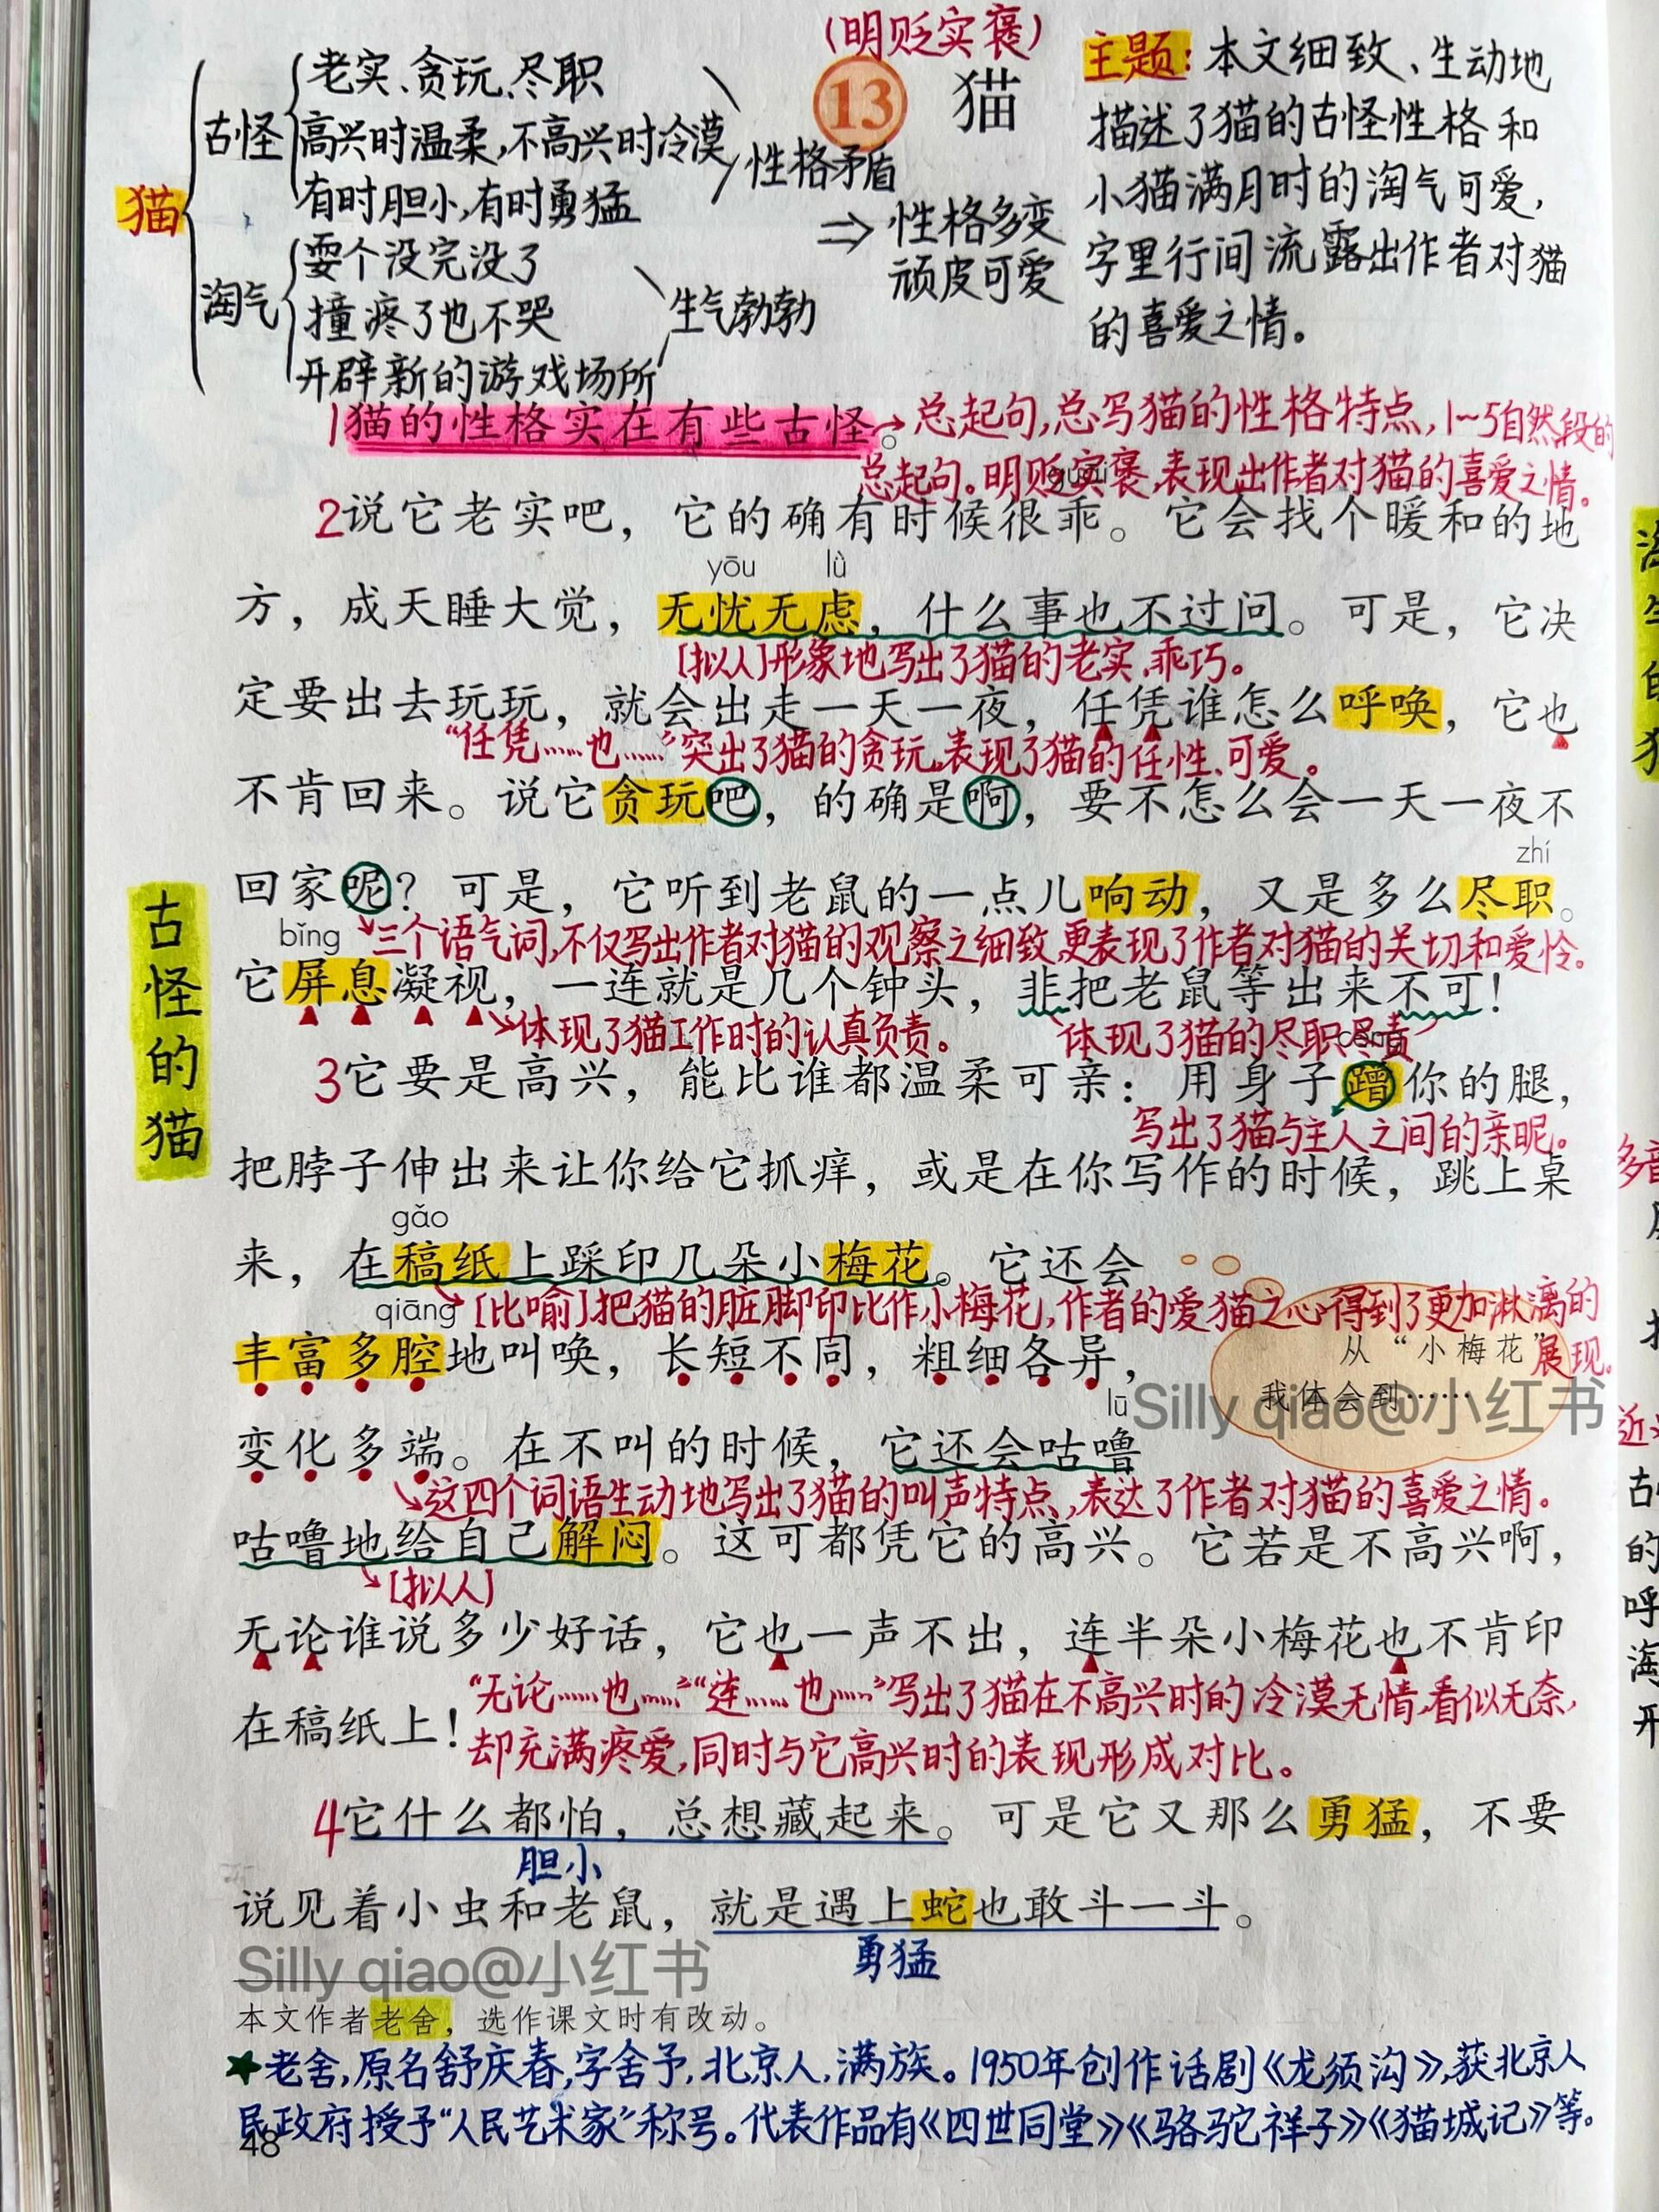 (明贬实褒)
13 猫
猫
古怪
老实、贪玩、尽职
高兴时温柔,不高兴时冷漠
有时胆小,有时勇猛
性格矛盾
淘气
耍个没完没了
撞疼了也不哭
开辟新的游戏场所
生气勃勃
⇒性格多变
顽皮可爱
主题:本文细致、生动地
描述了猫的古怪性格和
小猫满月时的淘气可爱,
字里行间流露出作者对猫
的喜爱之情。
1猫的性格实在有些古怪。
→总起句,总写猫的性格特点,1~5自然段的
总起句。明贬实褒,表现出作者对猫的喜爱之情。
2说它老实吧，它的确有时候很乖。它会找个暖和的地
yōu lǜ
方，成天睡大觉，无忧无虑，什么事也不过问。可是，它决
[拟人]形象地写出了猫的老实、乖巧。
定要出去玩玩，就会出走一天一夜，任凭谁怎么呼唤，它也
“任凭……也……”突出了猫的贪玩,表现了猫的任性、可爱。
不肯回来。说它贪玩吧，的确是啊，要不怎么会一天一夜不
zhí
回家呢？可是，它听到老鼠的一点儿响动，又是多么尽职。
bǐng
三个语气词,不仅写出作者对猫的观察之细致,更表现了作者对猫的关切和爱怜。
它屏息凝视，一连就是几个钟头，非把老鼠等出来不可！
体现了猫工作时的认真负责。
体现了猫的尽职尽责
古怪的猫
3它要是高兴，能比谁都温柔可亲：用身子蹭你的腿，
写出了猫与主人之间的亲昵。
把脖子伸出来让你给它抓痒，或是在你写作的时候，跳上桌
gǎo
来，在稿纸上踩印几朵小梅花。它还会
qiāng
[比喻]把猫的脏脚印比作小梅花,作者的爱猫之心得到了更加淋漓的
展现。
丰富多腔地叫唤，长短不同，粗细各异，
从“小梅花”
我体会到……
Silly qiao@小红书
lū
变化多端。在不叫的时候，它还会咕噜
这四个词语生动地写出了猫的叫声特点,表达了作者对猫的喜爱之情。
咕噜地给自己解闷。这可都凭它的高兴。它若是不高兴啊，
[拟人]
无论谁说多少好话，它也一声不出，连半朵小梅花也不肯印
“无论……也……”“连……也……”写出了猫在不高兴时的冷漠无情,看似无奈,
在稿纸上！
却充满疼爱,同时与它高兴时的表现形成对比。
4它什么都怕，总想藏起来。可是它又那么勇猛，不要
胆小
说见着小虫和老鼠，就是遇上蛇也敢斗一斗。
勇猛
Silly qiao@小红书
本文作者老舍，选作课文时有改动。
★老舍,原名舒庆春,字舍予,北京人,满族。1950年创作话剧《龙须沟》,获北京人
民政府授予“人民艺术家”称号。代表作品有《四世同堂》《骆驼祥子》《猫城记》等。
48